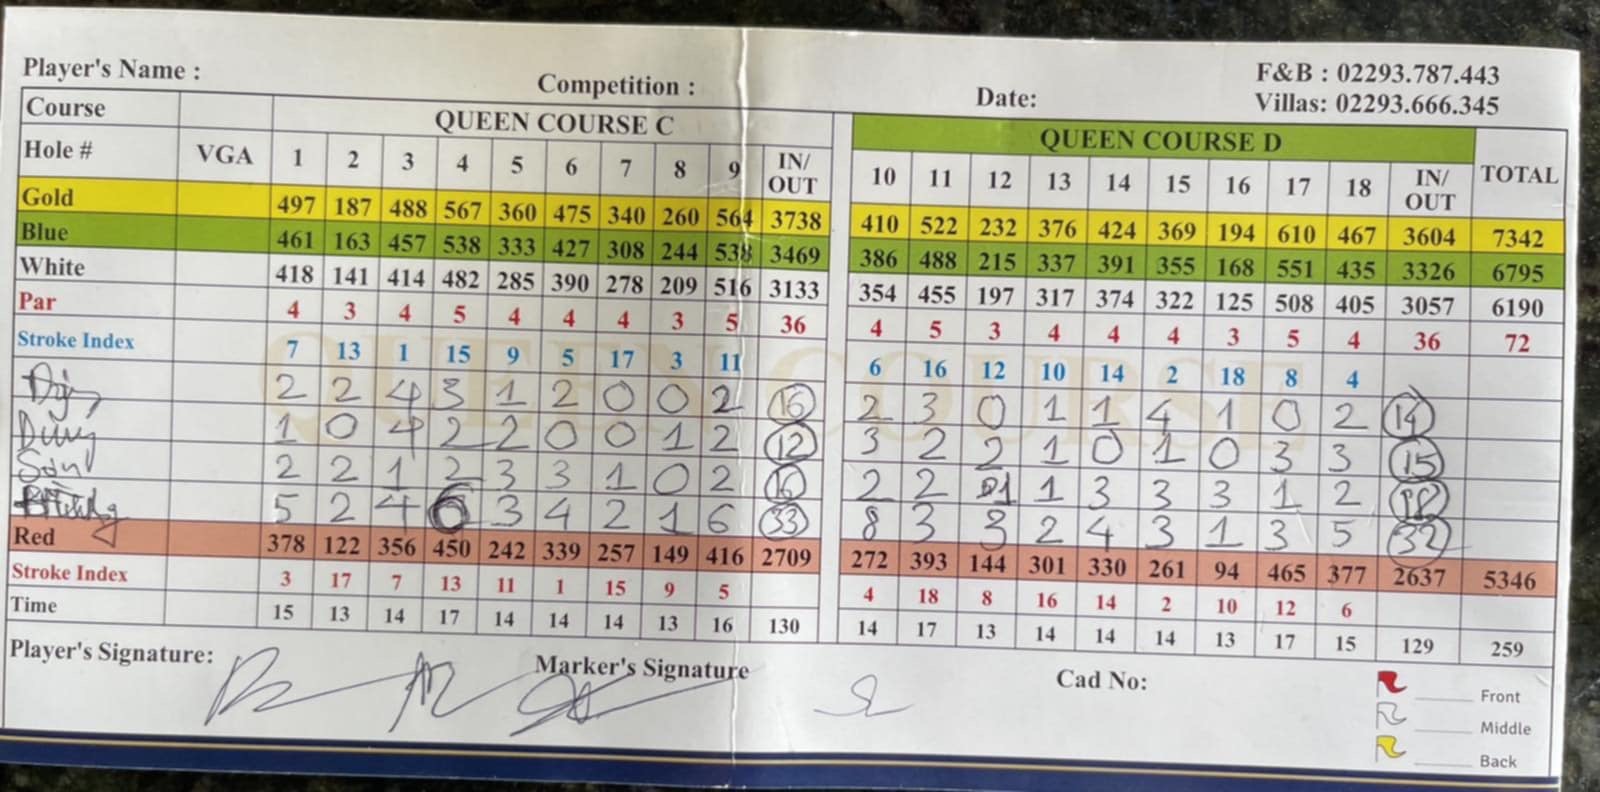 Player's Name : Competition : Date: F&B : 02293.787.443
Villas: 02293.666.345
Course QUEEN COURSE C QUEEN COURSE D TOTAL
Hole # VGA 1 2 3 4 5 6 7 8 9 IN/OUT 10 11 12 13 14 15 16 17 18 IN/OUT
Gold 497 187 488 567 360 475 340 260 564 3738 410 522 232 376 424 369 194 610 467 3604 7342
Blue 461 163 457 538 333 427 308 244 538 3469 386 488 215 337 391 355 168 551 435 3326 6795
White 418 141 414 482 285 390 278 209 516 3133 354 455 197 317 374 322 125 508 405 3057 6190
Par 4 3 4 5 4 4 4 3 5 36 4 5 3 4 4 4 3 5 4 36 72
Stroke Index 7 13 1 15 9 5 17 3 11 6 16 12 10 14 2 18 8 4
QUEEN COURSE
2 2 4 3 1 2 0 0 2 16 2 3 0 1 1 4 1 0 2 14
Dũng 1 0 4 2 2 0 0 1 2 12 3 2 2 1 0 1 0 3 3 15
Sơn 2 2 1 2 3 3 1 0 2 16 2 2 1 1 3 3 3 1 2 18
5 2 4 6 3 4 2 1 6 33 8 3 3 2 4 3 1 3 5 32
Red 378 122 356 450 242 339 257 149 416 2709 272 393 144 301 330 261 94 465 377 2637 5346
Stroke Index 3 17 7 13 11 1 15 9 5 4 18 8 16 14 2 10 12 6
Time 15 13 14 17 14 14 14 13 16 130 14 17 13 14 14 14 13 17 15 129 259
Player's Signature: Marker's Signature Cad No:
Front
Middle
Back